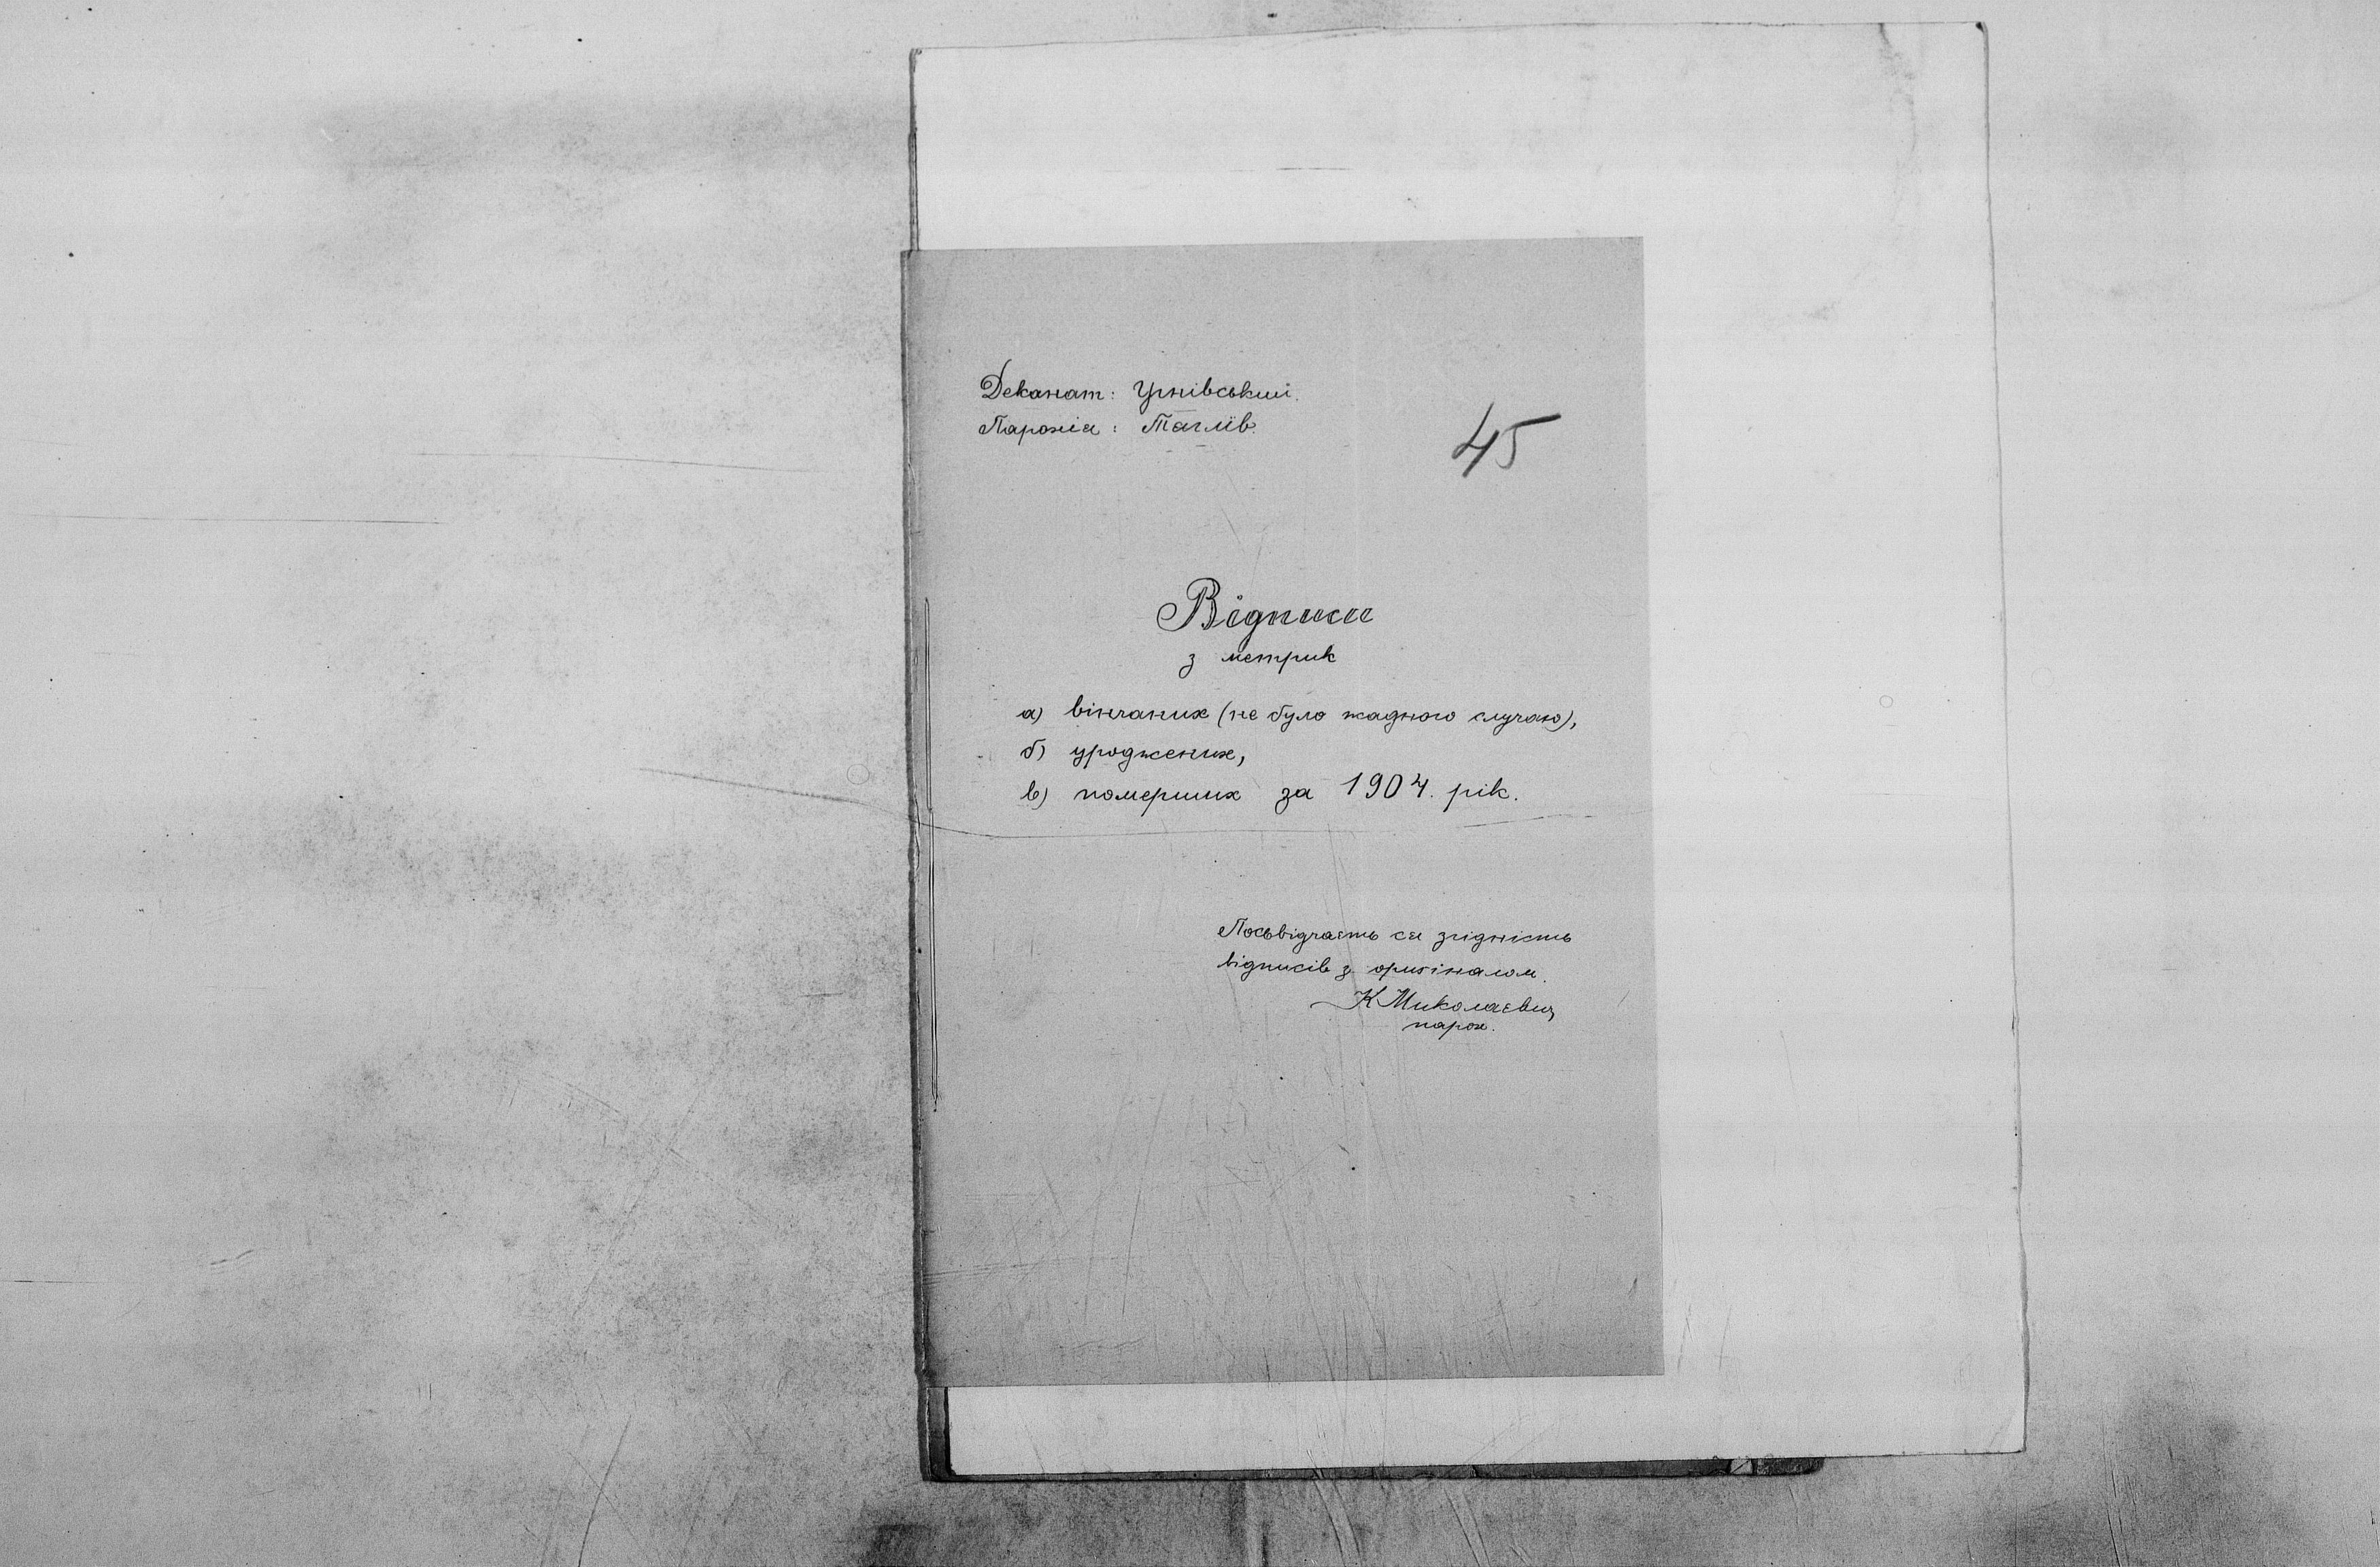 Деканат: Угнівський.
Парохія: Тяглів.
45
Відписи
з метрик
а) вінчаних (не було жадного случаю),
б) уроджених,
в) померших за 1904. рік.
Посьвідчаєть ся згідність
відписів з оригіналом.
К Миколаєвич
парох.